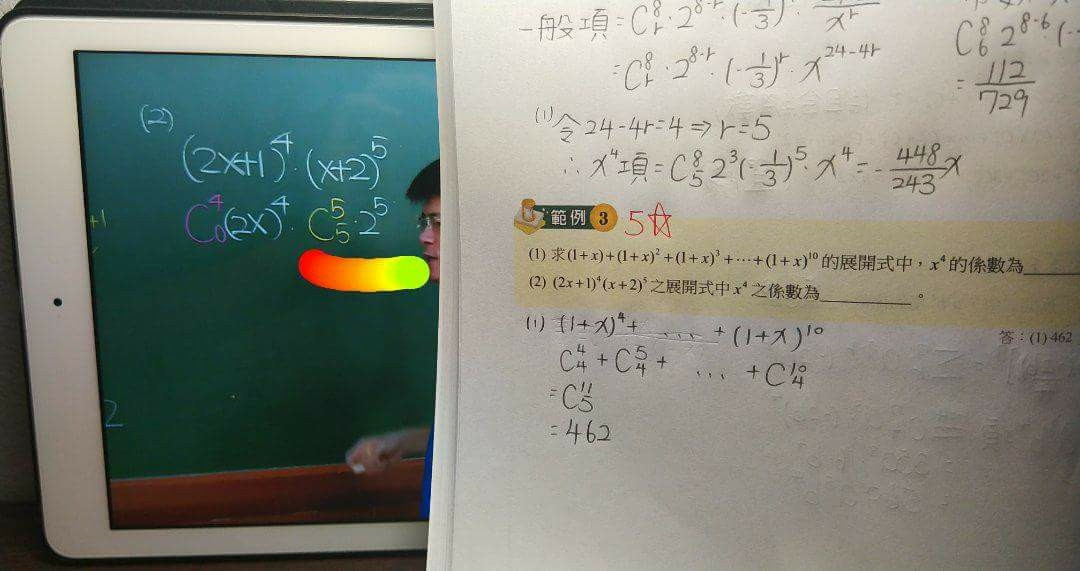 (2)
(2x+1)⁴·(x+2)⁵
C⁴₀(2x)⁴·C⁵₅·2⁵
+1
2
一般項=C⁸ᵣ·2⁸⁻ʳ·(-1/3)ʳ·
xʳ
=C⁸ᵣ·2⁸⁻ʳ·(-1/3)ʳ·x²⁴⁻⁴ʳ
C⁸₆2⁸⁻⁶(-
=112/729
(1)令24-4r=4⇒r=5
∴x⁴項=C⁸₅2³(-1/3)⁵·x⁴=-448/243x
範例3 5☆
(1) 求(1+x)+(1+x)²+(1+x)³+⋯+(1+x)¹⁰的展開式中，x⁴的係數為______
(2) (2x+1)⁴(x+2)⁵之展開式中x⁴之係數為______。
答：(1) 462
(1) (1+x)⁴+ ... +(1+x)¹⁰
C⁴₄+C⁵₄+ ... +C¹⁰₄
=C¹¹₅
=462